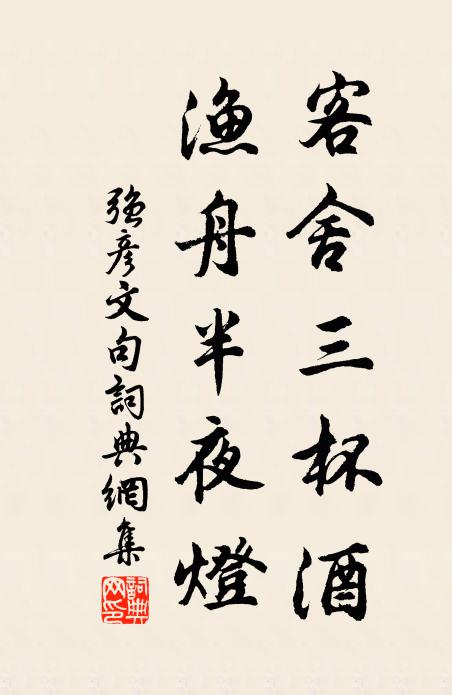 客舍三杯酒
漁舟半夜燈
強彥文句詞典網集
詞典网印